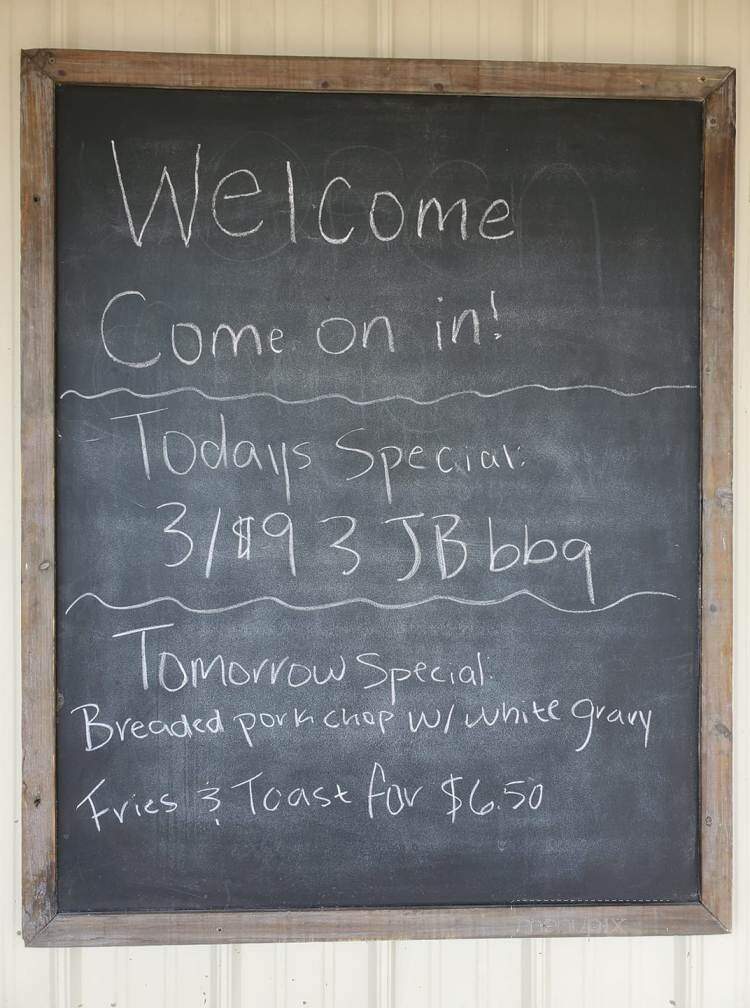 Welcome
Come on in!
Todays Special:
3/$9 3 JB bbq
Tomorrow Special:
Breaded pork chop w/ white gravy
Fries & Toast for $6.50
menupix